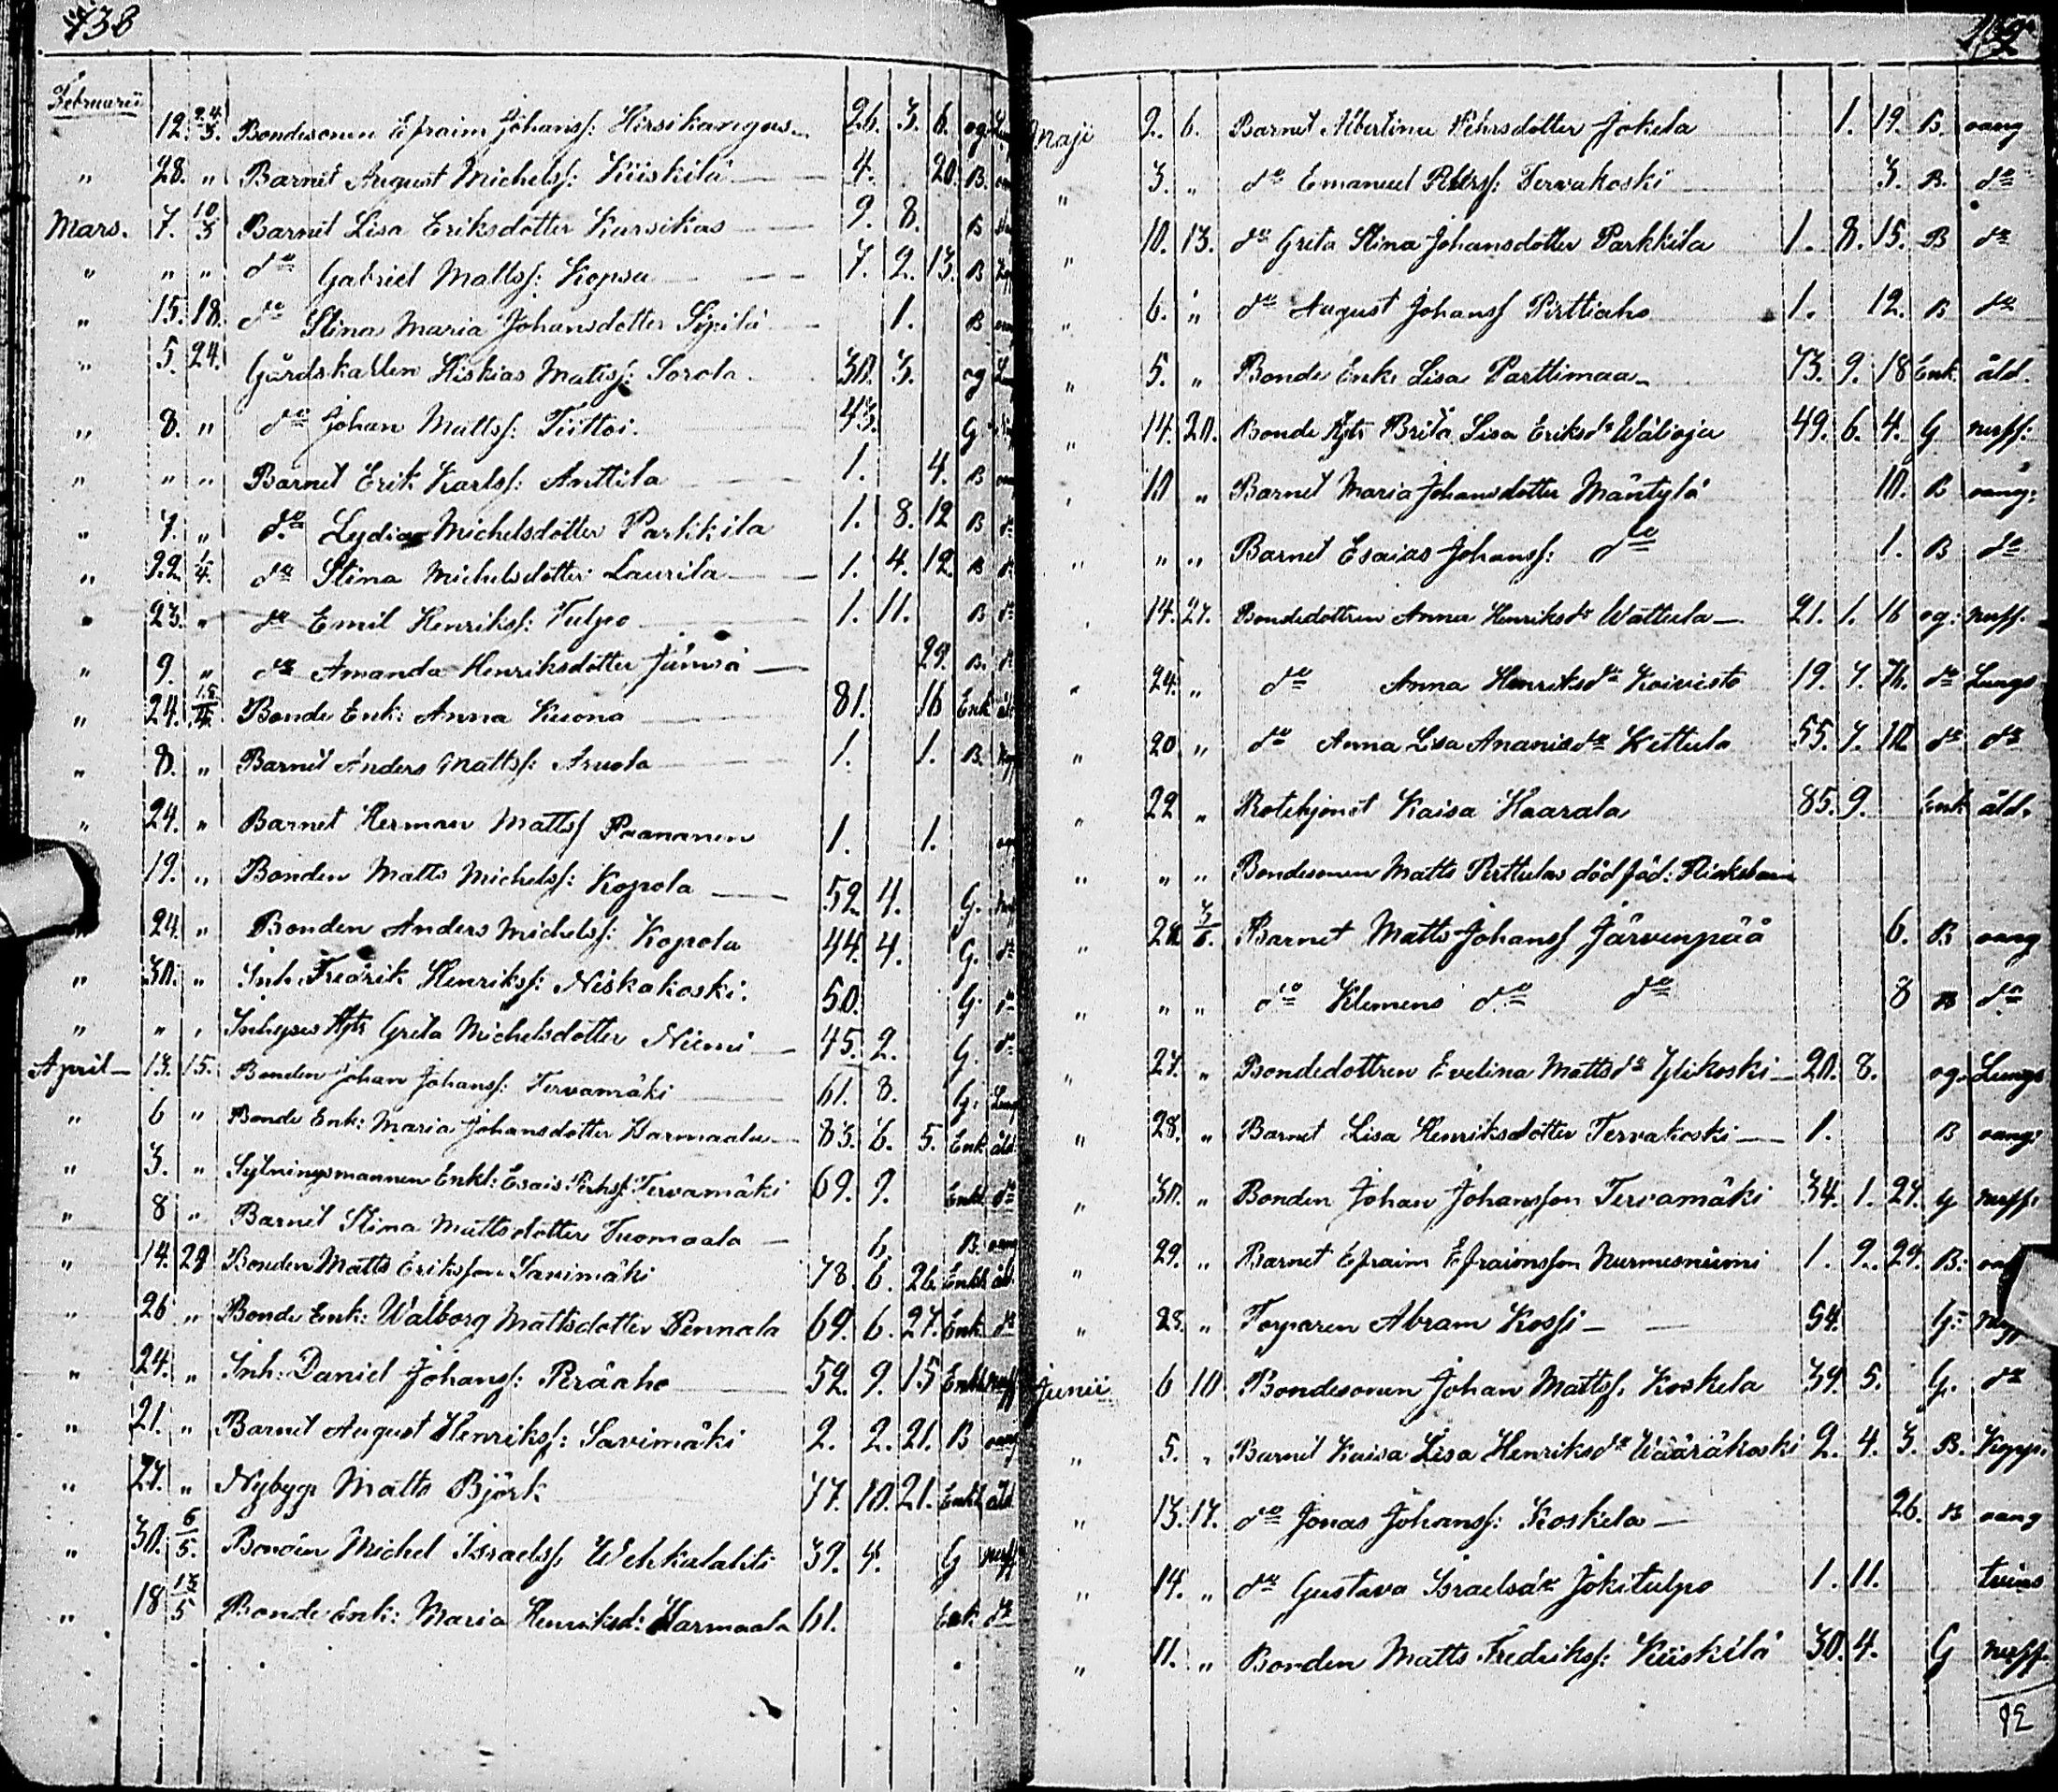 138
Februarii 12. 24/3. Bondesonen Efraim Johanss: Hirsikangas 26. 3. 6. og:
" 28. " Barnet August Michelss: Kiiskilä 4. 20. B.
Mars. 7. 10/3 Barnet Lisa Eriksdotter Kursikas 9. 8. B
" " " do Gabriel Mattss: Kopsa 7. 2. 13. B
" 15. 18. do Stina Maria Johansdotter Sipilä 1. B
" 5. 24. Gårdskarlen Hiskias Mattss: Sorola 30. 3. og
" 8. " do Johan Mattss: Tiittoi. 43. G
" " " Barnet Erik Karlss: Anttila 1. 4. B
" 7. " do Lydia Michelsdotter Parkkila 1. 8. 12 B do
" 22. 1/4. do Stina Michelsdotter Laurila 1. 4. 12. B do
" 23. " do Emil Henrikss: Tulpo 1. 11. B do
" 9. " do Amanda Henriksdotter Jämsä 29. B. do
" 24. 15/4. Bonde Enk: Anna Kuona 81. 16 Enk
" 8. " Barnet Anders Mattss: Aruola 1. 1. B.
" 24. " Barnet Herman Mattss Paananen 1. 1.
19. " Bonden Matts Michelss: Kopola 52. 4. G.
" 24. " Bonden Anders Michelss: Kopola 44. 4. G. do
" 30. " Inh. Fredrik Henrikss: Niskakoski. 50. G. do
" " " Inhyses Hu Greta Michelsdotter Niemi 45. 2. G. do
April 13. 15. Bonden Johan Johanss: Tervamäki 61. 8. G. Lung
" 6 " Bonde Enk: Maria Johansdotter Harmaala 83. 6. 5. Enk åld
" 3. " Sytningsmannen Enkl: Esais Pehrss: Tervamäki 69. 9. Enkl do
" 8 " Barnet Stina Mattsdotter Tuomaala 6. B. oang
" 14. 29 Bonden Matts Eriksson Savimäki 78. 6. 26. Enkl åld
" 26 " Bonde Enk: Walborg Mattsdotter Pennala 69. 6. 27. Enk. do
" 24. " Inh: Daniel Johanss: Peräaho 52. 9. 15 Enkl nerff
" 21. " Barnet August Henrikss: Savimäki 2. 2. 21. B oang
" 27. " Nybygg. Matts Björk 77. 10. 21. Enkl åld
" 30. 6/5. Bonden Michel Israelss Wehkalahti 39. 4. G nerff
" 18 13/5 Bonde Enk: Maria Henriksd: Harmaala 61. Enk do
Maji 2. 6. Barnet Albertina Pehrsdotter Jokela 1. 19. B. oang
" 3. " do Emanuel Petterss: Tervakoski 3. B. do
" 10. 13. do Greta Stina Johansdotter Parkkila 1. 8. 15. B do
" 6. " do August Johanss Pirttiaho 1. 12. B do
" 5. " Bonde Enk: Lisa Parttimaa 73. 9. 18 Enk. åld.
" 14. 20. Bonde Brita Lisa Eriksdr Wälioja 49. 6. 4. G nerff:
" 10 " Barnet Maria Johansdotter Mäntylä 10. B oang:
" " " Barnet Esaias Johanss: do 1. B do
" 14. 27. Bondedottren Anna Henriksdr Wattula 21. 1. 16 og: nerff.
" 24. " do Anna Henriksdr Koivisto 19. 7. do Lungs
" 20 " do Anna Lisa Ananiadr Kettula 55. 7. 10 do do
" 22 " Rotehjonet Kaisa Haarala 85. 9. Enk åld.
" " " Bondesonen Matts Perttulas död föd: Flickebarn
" 20 3/6. Barnet Matts Johanss Järvenpää 6. B oang
" " " do Klemens do do 8 B do
" 27. " Bondedottren Evelina Mattsdr Ylikoski 20. 8. og. Lungs
" 28. " Barnet Lisa Henriksdotter Tervakoski 1. B oang:
" 30. " Bonden Johan Johansson Tervamäki 34. 1. 27. G nerff.
" 29. " Barnet Efraim Efraimsson Nurmesniemi 1. 9. 29. B:
" 28. " Torparen Abram Kossi 54. G:
Junii 6 10 Bondesonen Johan Mattss. Koskela 39. 5. G. do
" 5. " Barnet Kaisa Lisa Henriksdr Wääräkoski 2. 4. 3. B. Kopp:
" 13. 17. do Jonas Johanss: Koskela 26. B oang
" 14. " do Gustava Israelsdr Jokitulpo 1. 11. tvins
" 11. " Bonden Matts Fredrikss: Kiiskilä 30. 4. G nerff.